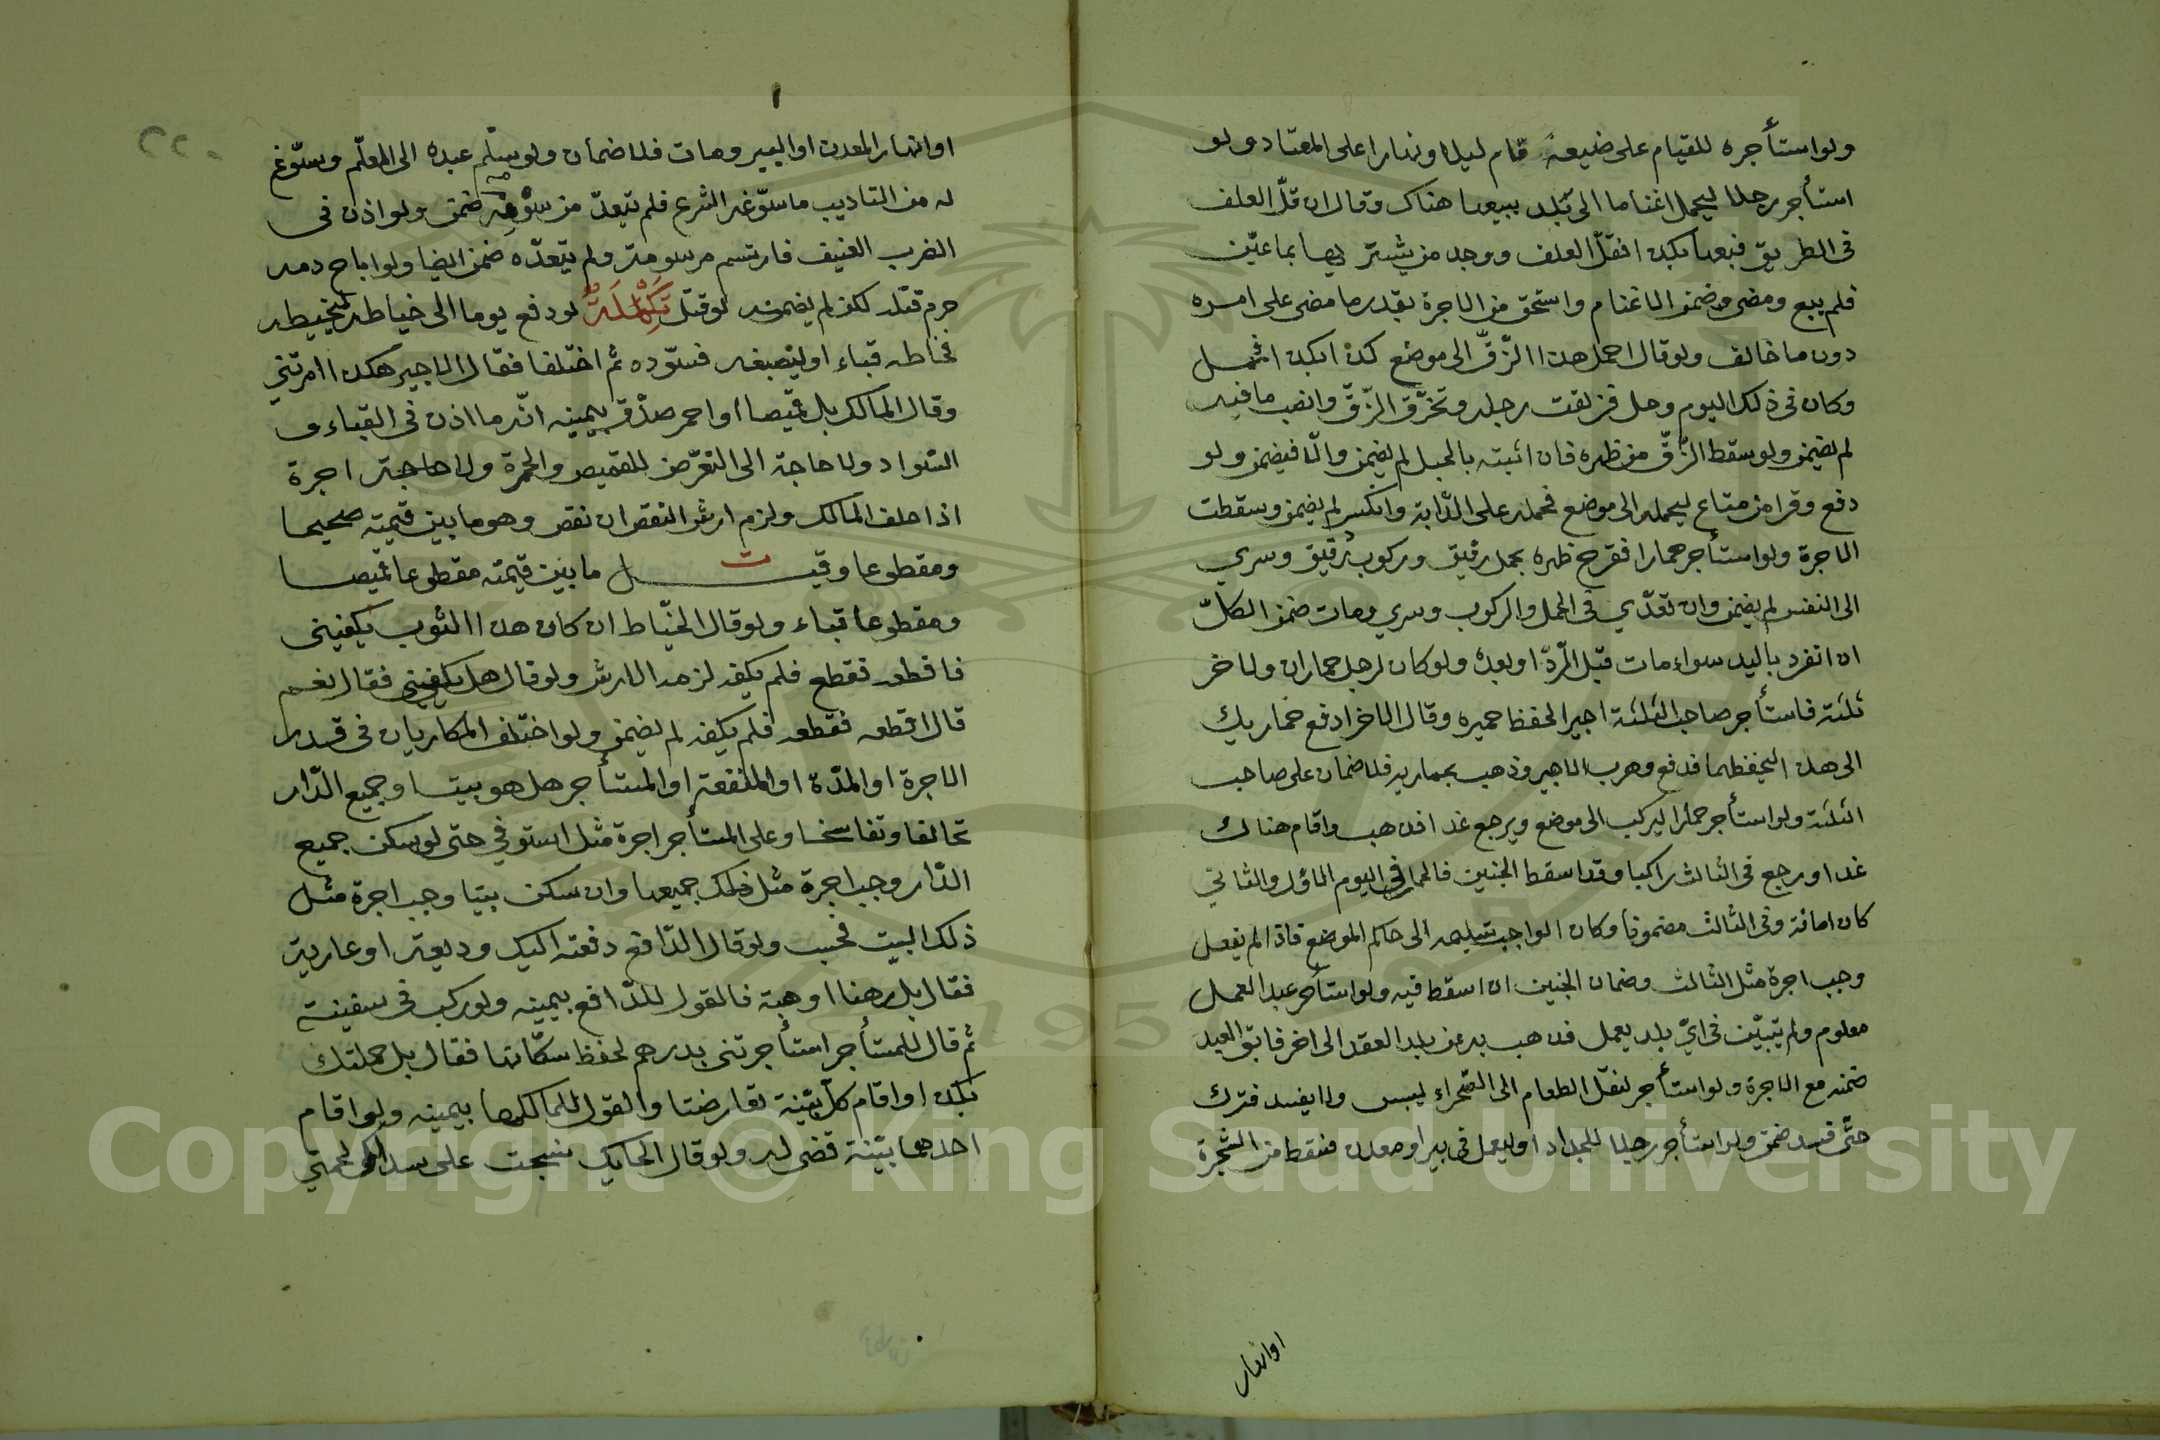 ولو استأجره للقيام على ضيعة قام ليلا ونهارا على المعتاد ولو
استأجر رجلا ليحمل اغناما الى بلد يبيعها هناك وقال ان قلّ العلف
فى الطريق فبعها بكذا فقلّ العلف ووجد من يشتريها بما عيّن
فلم يبع ومضى ضمن الاغنام واستحق من الاجرة بقدر ما مضى على امره
دون ما خالف ولو قال احمل هذا الزّقّ الى موضع كذا بكذا فحمل
وكان فى ذلك اليوم وحل فزلقت رجله وتخرّق الزّقّ وانصب ما فيه
لم يضمن ولو سقط الزّقّ من ظهره فان اثبته بالحبل لم يضمن والّا فيضمن ولو
دفع وقرا من متاع ليحمله الى موضع فحمله على الدّابة وانكسر لم يضمن وسقطت
الاجرة ولو استأجر حمارا فقرح ظهره بحمل رفيق وركوب رفيق وسري
الى النفس لم يضمن وان تعدّي فى الحمل والركوب وسري ومات ضمن الكلّ
ان انفرد باليد سواء مات قبل الرّدّ او بعده ولو كان لرجل حماران ولاخر
ثلثة فاستأجر صاحب الثلثة اجيرا لحفظ حميره وقال الاخر ادفع حماريك
الى هذا ليحفظهما فدفع وهرب الاجير وذهب بحماريه فلا ضمان على صاحب
الثلثة ولو استأجر حمارا ليركب الى موضع ويرجع غدا فذهب واقام هناك
غدا ورجع فى الثالث راكبا وقد اسقط الجنين فالحمار فى اليوم الاول والثاني
كان امانة وفى الثالث مضمونا وكان الواجب تسليمه الى حاكم الموضع فاذا لم يفعل
وجب اجرة مثل الثالث وضمان الجنين ان اسقط فيه ولو استأجر عبدا لعمل
معلوم ولم يتبيّن فى ايّ بلد يعمل فذهب به من بلد العقد الى اخر فابق العبد
ضمنه مع الاجرة ولو استأجر لنقل الطعام الى الصّحراء ليبس ولا يفسد فترك
حتّى فسد ضمن ولو استأجر رجلا للجداد او ليعمل فى بير او معدن فسقط من الشجرة
او انهار
او انهار المعدن او البير ومات فلا ضمان ولو سلّم عبده الى المعلّم وسوّغ
له من التاديب ما سوّغه الشرع فلم يتعدّ من سوّغه ضمن ولو اذن فى
الضرب العنيف فارتسم مرسومه ولم يتعدّه ضمن ايضا ولو اباح دمه
حرم قتله لكن لم يضمنه لو قتل تَكْمِلَةٌ لو دفع يوما الى خياط ليخيطه
فخاطه قباء او ليصبغه فسوّده ثم اختلفا فقال الاجير هكذا امرتني
وقال المالك بل قميصا او احمر صدّق بيمينه انّه ما اذن فى القباء و
السّواد ولا حاجة الى التعرّض للقميص والحمرة ولا حاجة اجرة
اذا حلف المالك ولزم ارش النقص ان نقص وهو ما بين قيمته صحيحا
ومقطوعا وقيل ما بين قيمته مقطوعا قميصا
ومقطوعا قباء ولو قال الخيّاط ان كان هذا الثوب يكفينى
فاقطعه فقطع فلم يكفه لزمه الارش ولو قال هل يكفينى فقال نعم
قال اقطعه فقطعه فلم يكفه لم يضمن ولو اختلف المكاريان فى قدر
الاجرة او المدّة او المنفعة او المستأجر هل هو بيت او جميع الدّار
تحالفا وتفاسخا وعلى المستأجر اجرة مثل استوفي حتى لو سكن جميع
الدّار وجب اجرة مثل ذلك جميعها وان سكن بيتا وجب اجرة مثل
ذلك البيت فحسب ولو قال الدّافع دفعته اليك وديعة او عارية
فقال بل رهنا او هبة فالقول للدّافع بيمينه ولو ركب فى سفينة
ثم قال للمستأجر استأجرتنى بدرهم لحفظ سكّانها فقال بل حملتك
بكذا واقام كلّ بيّنة تعارضتا والقول للمالك بيمينه ولو اقام
احدهما بيّنة قضى له ولو قال الحايك نسجت على سداك لحمتي
Copyright © King Saud University
1957